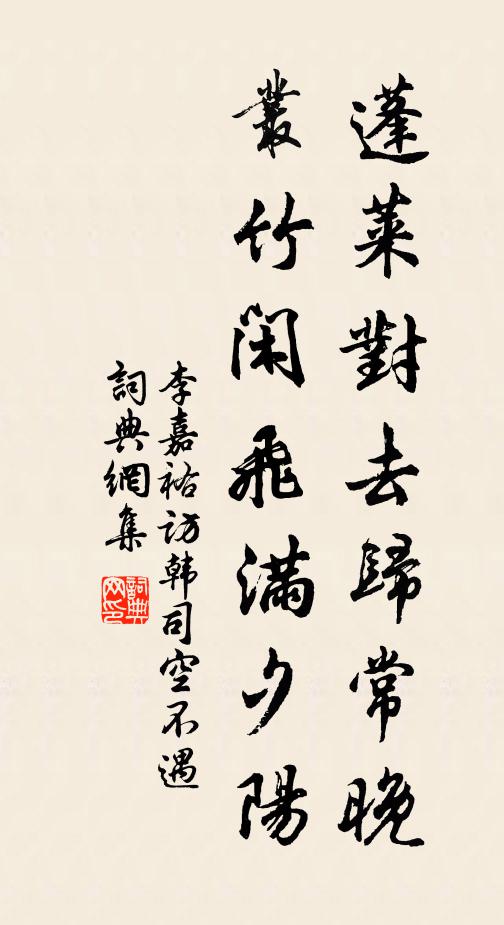 蓬莱對去歸常晚
叢竹閑飛滿夕陽
李嘉祐访韩司空不遇
詞典網集
詞典网印